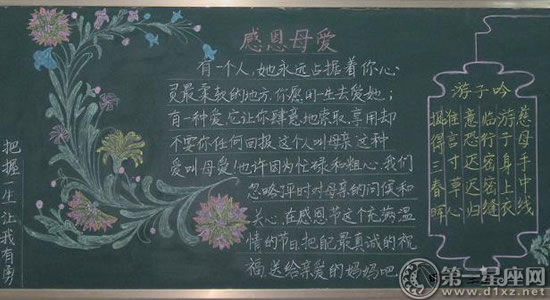 感恩母爱
有一个人,她永远占据着你心
灵最柔软的地方,你愿用一生去爱她;
有一种爱,它让你肆意地索取、享用却
不要你任何回报这个人叫母亲这种
爱叫母爱!也许因为忙碌和粗心,我们
忽略了平时对母亲的问候和
关心,在感恩节这个充满温
情的节日把配最真诚的祝
福送给亲爱的妈妈吧
游子吟
慈母手中线
游子身上衣
临行密密缝
意恐迟迟归
谁言寸草心
报得三春晖
把握一生让我有勇
第一星座网
www.d1xz.net